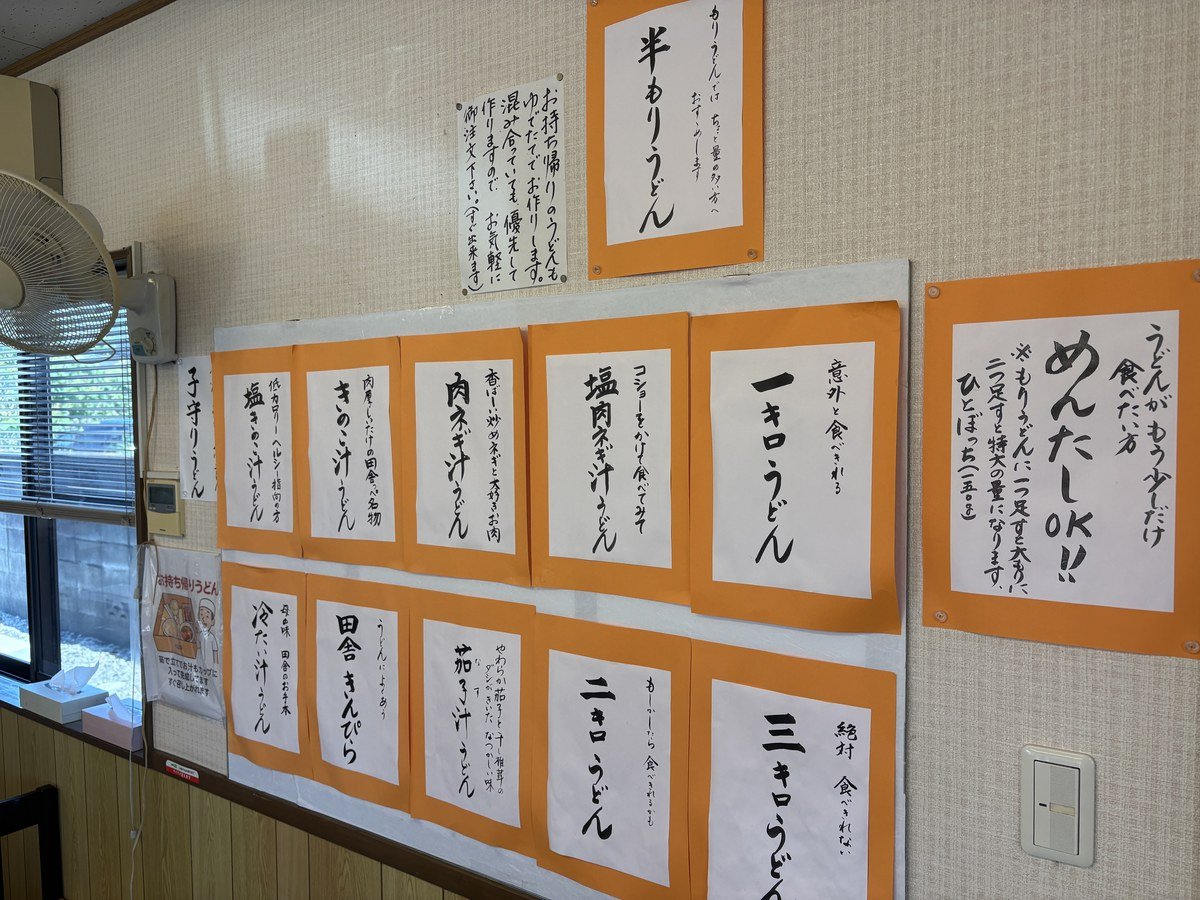 もりうどんでは ちょっと量の多い方へ
おすすめします
半もりうどん
お持ち帰りのうどんも
ゆでたてでお作りします。
混み合っていても優先して
作りますので お気軽に
御注文下さい。(すぐ出来ます)
うどんがもう少しだけ
食べたい方
めんたしOK!!
※もりうどんに一つ足すと大もりに
二つ足すと特大の量になります、
ひとぼっち(一五〇g)
意外と食べきれる
一キロうどん
コショーをかけて食べてみて
塩肉ネギ汁うどん
香ばしい炒めネギと大好きお肉
肉ネギ汁うどん
肉厚しいたけの田舎っぺ名物
きのこ汁うどん
低カロリー ヘルシー指向の方
塩きのこ汁うどん
子守りうどん
絶対 食べきれない
三キロうどん
もしかしたら食べきれるかも
二キロうどん
やわらか茄子と干し椎茸の
ダシがきいたなつかしい味
なす
茄子汁うどん
うどんによくあう
田舎きんぴら
母の味 田舎のお手本
冷たい汁うどん
お持ち帰りうどん
入って完成してます
すぐ召し上がれます